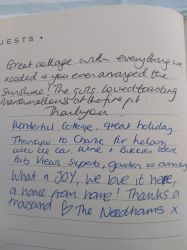 UESTS •
Great cottage with everything we
needed & you even arranged the
Sunshine! The girls loved toasting
marshmallows at the fire pit.
Thankyou
Wonderful Cottage, great holiday.
Thankyou to Charlie for helping
with the car. Wine & Biccies
tub Views Superb, Garden is amazing
What a JOY, we love it here,
a home from home! Thanks a
thousand ♡ The Needhams x